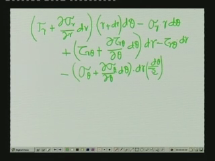 (σ_r + ∂σ_r/∂r dr) (r+dr) dθ - σ_r r dθ
+ (τ_rθ + ∂τ_rθ/∂θ dθ) dr - τ_rθ dr
- (σ_θ + ∂σ_θ/∂θ dθ) dr (dθ/2)